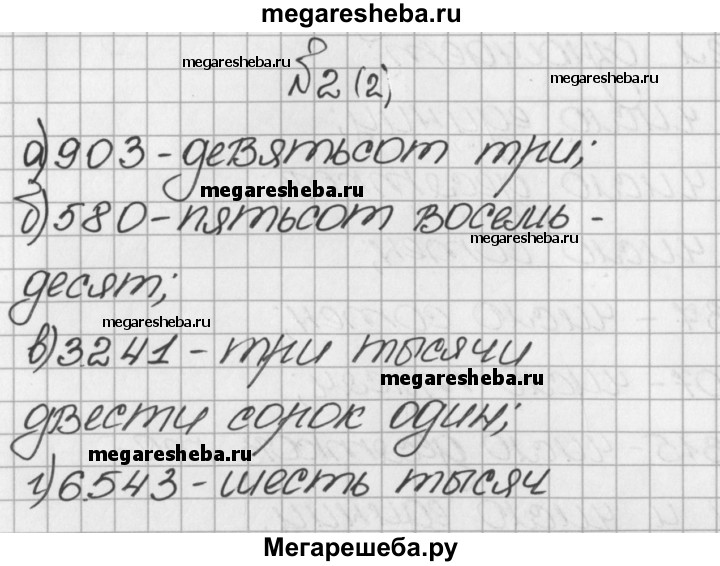 megaresheba.ru
№2 (2)
megaresheba.ru
megaresheba.ru
а) 903 - девятьсот три;
megaresheba.ru
б) 580 - пятьсот восемь -
megaresheba.ru
десят;
megaresheba.ru
в) 3241 - три тысячи
megaresheba.ru
двести сорок один;
megaresheba.ru
г) 6543 - шесть тысяч
Мегарешеба.ру